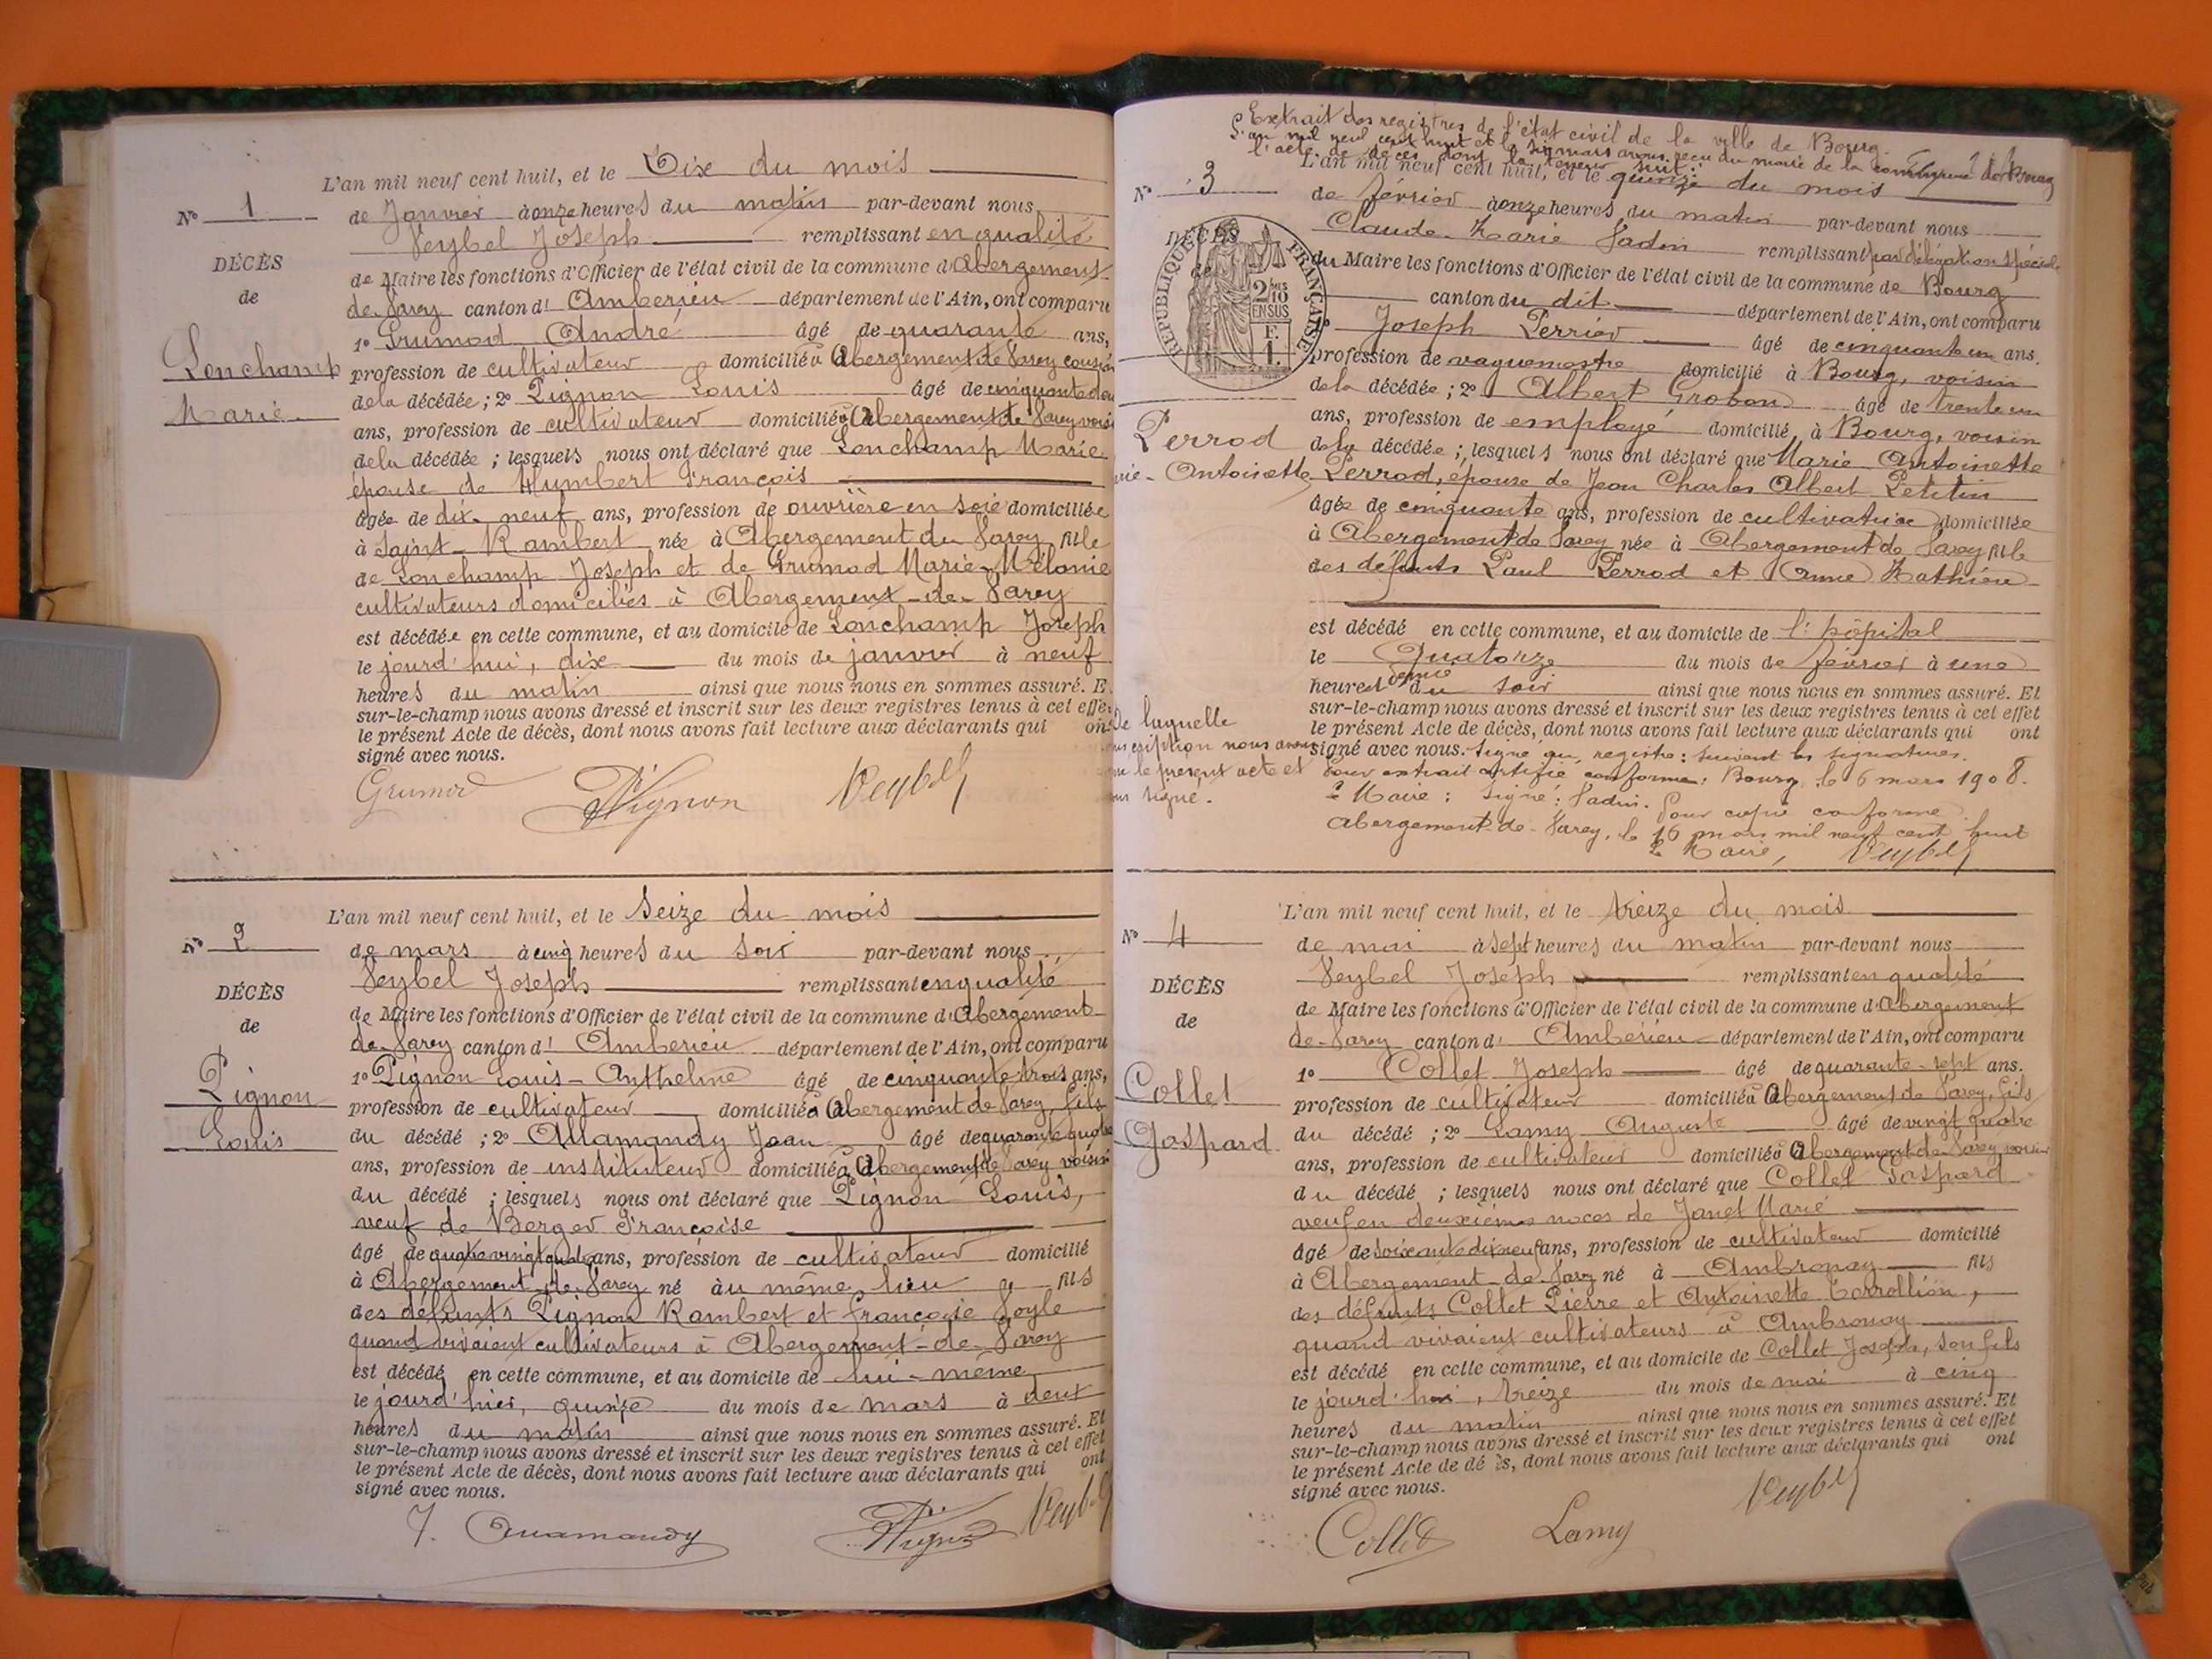 L'an mil neuf cent huit, et le Dix du mois
N° 1
de Janvier à onze heures du matin par-devant nous
Veybel Joseph remplissant en qualité
DÉCÈS
de Maire les fonctions d'Officier de l'état civil de la commune d'Abergement-
de
de-Varey canton d' Ambérieu département de l'Ain, ont comparu
1° Grumod André âgé de quarante ans,
Lonchamp
profession de cultivateur domicilié à Abergement de Varey cousin
de la décédée ; 2° Pignon Louis âgé de cinquante deux
Marie
ans, profession de cultivateur domicilié à Abergement de Varey voisin
de la décédée ; lesquels nous ont déclaré que Lonchamp Marie
épouse de Humbert François
âgée de dix-neuf ans, profession de ouvrière en soie domiciliée
à Saint-Rambert née à Abergement de Varey fille
de Lonchamp Joseph et de Grumod Marie-Mélanie
cultivateurs domiciliés à Abergement-de-Varey
est décédée en cette commune, et au domicile de Lonchamp Joseph
le jourd'hui, dix du mois de janvier à neuf
heures du matin ainsi que nous nous en sommes assuré. E
sur-le-champ nous avons dressé et inscrit sur les deux registres tenus à cet effe
le présent Acte de décès, dont nous avons fait lecture aux déclarants qui on
signé avec nous.
Grumod Pignon Veybel
L'an mil neuf cent huit, et le seize du mois
N° 2
de mars à cinq heures du soir par-devant nous
Veybel Joseph remplissant en qualité
DÉCÈS
de Maire les fonctions d'Officier de l'état civil de la commune d'Abergement-
de
de-Varey canton d' Ambérieu département de l'Ain, ont comparu
1° Pignon Louis-Anthelme âgé de cinquante-trois ans,
Pignon
profession de cultivateur domicilié à Abergement de Varey, fils
Louis
du décédé ; 2° Allamandy Jean âgé de quarante quatre
ans, profession de instituteur domicilié à Abergement de Varey voisin
du décédé ; lesquels nous ont déclaré que Pignon Louis,
veuf de Berger Françoise
âgé de ans, profession de cultivateur domicilié
à Abergement-de-Varey né au même lieu fils
des défunts Pignon Rambert et Françoise
quand vivaient cultivateurs à Abergement-de-Varey
est décédé en cette commune, et au domicile de lui-même
le jourd'hier, quinze du mois de mars à deux
heures du matin ainsi que nous nous en sommes assuré. Et
sur-le-champ nous avons dressé et inscrit sur les deux registres tenus à cet effet
le présent Acte de décès, dont nous avons fait lecture aux déclarants qui ont
signé avec nous.
J. Allamandy Pignon Veybel
Extrait des registres de l'état civil de la ville de Bourg.
L'an mil neuf cent huit et le six mars avons reçu du maire de la commune de Bourg
l'acte de décès dont la teneur suit :
L'an mil neuf cent huit, et le quinze du mois
N° 3
de février à onze heures du matin par-devant nous
Claude-Marie Vadin remplissant par délégation spéciale
DÉCÈS
de
RÉPUBLIQUE FRANÇAISE
2/10 EN SUS
F. 1.
du Maire les fonctions d'Officier de l'état civil de la commune de Bourg
canton du dit département de l'Ain, ont comparu
1° Joseph Perrier âgé de cinquante un ans.
profession de vaguemestre domicilié à Bourg, voisin
de la décédée ; 2° Albert Grobon âgé de trente un
ans, profession de employé domicilié à Bourg, voisin
Perrod
de la décédée ; lesquels nous ont déclaré que Marie Antoinette
rie-Antoinette
Perrod, épouse de Jean Charles Albert Petitin
âgée de cinquante ans, profession de cultivatrice domiciliée
à Abergement de Varey née à Abergement de Varey fille
des défunts Paul Perrod et Anne Mathieu
est décédé en cette commune, et au domicile de l'hôpital
le Quatorze du mois de février à une
heure demie du soir ainsi que nous nous en sommes assuré. Et
sur-le-champ nous avons dressé et inscrit sur les deux registres tenus à cet effet
le présent Acte de décès, dont nous avons fait lecture aux déclarants qui ont
signé avec nous. Signé au registre : suivent les signatures.
De laquelle
cription nous avons
le présent acte et
signé.
Pour extrait certifié conforme, Bourg, le 6 mars 1908.
Le Maire : Signé : Vadin. Pour copie conforme
Abergement-de-Varey, le 16 mars mil neuf cent huit
Le Maire, Veybel
L'an mil neuf cent huit, et le treize du mois
N° 4
de mai à sept heures du matin par-devant nous
Veybel Joseph remplissant en qualité
DÉCÈS
de Maire les fonctions d'Officier de l'état civil de la commune d'Abergement
de
de-Varey canton d' Ambérieu département de l'Ain, ont comparu
1° Collet Joseph âgé de quarante-sept ans.
Collet
profession de cultivateur domicilié à Abergement de Varey, fils
Gaspard
du décédé ; 2° Lamy Auguste âgé de vingt quatre
ans, profession de cultivateur domicilié à Abergement de Varey, voisin
du décédé ; lesquels nous ont déclaré que Collet Gaspard
veuf en deuxièmes noces de Janet Marie
âgé de soixante dix neuf ans, profession de cultivateur domicilié
à Abergement-de-Varey né à Ambronay fils
des défunts Collet Pierre et Antoinette
quand vivaient cultivateurs à Ambronay
est décédé en cette commune, et au domicile de Collet Joseph, son fils
le jourd'hui, treize du mois de mai à cinq
heures du matin ainsi que nous nous en sommes assuré. Et
sur-le-champ nous avons dressé et inscrit sur les deux registres tenus à cet effet
le présent Acte de dé ès, dont nous avons fait lecture aux déclarants qui ont
signé avec nous.
Collet Lamy Veybel